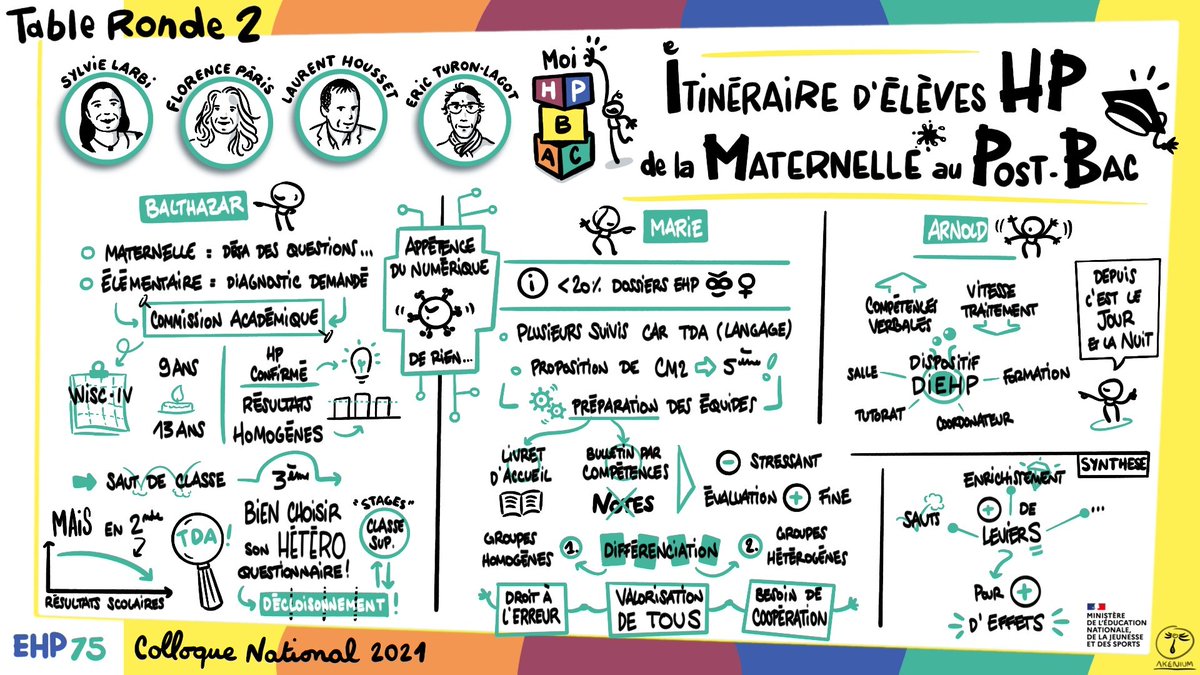 Table Ronde 2
SYLVIE LARBI
FLORENCE PÂRIS
LAURENT HOUSSET
ERIC TURON-LAGOT
Moi
H P
B
A C
ITINÉRAIRE D'ÉLÈVES HP
de la MATERNELLE au POST-BAC
BALTHAZAR
MATERNELLE = DÉJA DES QUESTIONS...
ÉLÉMENTAIRE = DIAGNOSTIC DEMANDÉ
COMMISSION ACADÉMIQUE
WISC-IV
9 ANS
13 ANS
HP
CONFIRMÉ
RÉSULTATS
HOMOGÈNES
SAUT DE CLASSE
3ème
MAIS EN 2nde
RÉSULTATS SCOLAIRES
TDA !
BIEN CHOISIR
SON HÉTÉRO
QUESTIONNAIRE !
"STAGES"
CLASSE
SUP.
DÉCLOISONNEMENT !
APPÉTENCE
DU NUMÉRIQUE
DE RIEN...
MARIE
i <20% DOSSIERS EHP ♀
PLUSIEURS SUIVIS CAR TDA (LANGAGE)
PROPOSITION DE CM2 → 5ème !
PRÉPARATION DES ÉQUIPES
LIVRET
D'ACCUEIL
BULLETIN PAR
COMPÉTENCES
NOTES
- STRESSANT
ÉVALUATION + FINE
GROUPES
HOMOGÈNES
1. DIFFÉRENCIATION 2.
GROUPES
HÉTÉROGÈNES
DROIT À
L'ERREUR
VALORISATION
DE TOUS
BESOIN DE
COOPÉRATION
ARNOLD
COMPÉTENCES
VERBALES
VITESSE
TRAITEMENT
DISPOSITIF
DIEHP
SALLE
FORMATION
TUTORAT
COORDONATEUR
DEPUIS
C'EST LE
JOUR
ET LA NUIT
SYNTHESE
ENRICHISTEMENT
SAUTS
+ DE
LEVIERS
...
POUR +
D'EFFETS
EHP 75
Colloque National 2021
MINISTÈRE
DE L'ÉDUCATION
NATIONALE,
DE LA JEUNESSE
ET DES SPORTS
AKENIUM